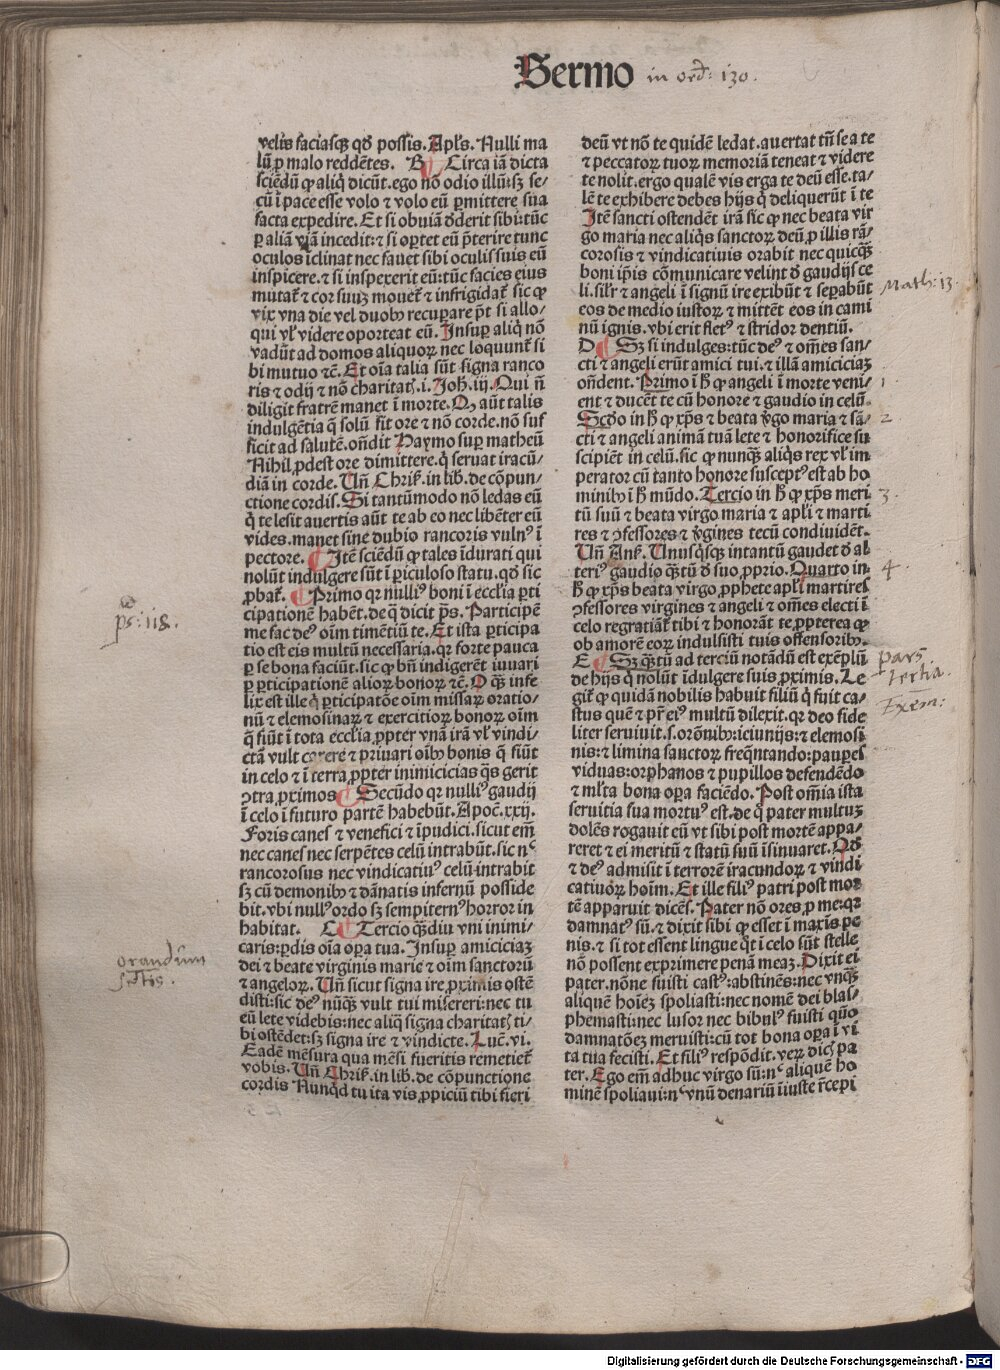 Sermo in ord: 130.
velis faciasq̃ qd̃ possis. Apl̃s. Nulli ma
lũ ꝓ malo reddẽtes. B Circa iã dicta
sciẽdũ ꝙ aliq̃ dicũt. ego nõ odio illũ: sȝ se/
cũ ĩ pace esse volo ⁊ volo eũ ꝑmittere sua
facta expedire. Et si obuiã ꝺderit sibi: tũc
ꝑ aliã viã incedit: ⁊ si oꝑtet eũ p̃terire tunc
oculos ĩclinat nec fauet sibi oculis suis eũ
inspicere. ⁊ si inspexerit eũ: tũc facies eius
mutat̃ ⁊ cor suuȝ mouet̃ ⁊ infrigidat̃ sic ꝙ
vix vna die vel duobꝰ recuꝑare p̃t si allo/
qui vl̃ videre oporteat eũ. Insuꝑ aliq̃ nõ
vadũt ad domos aliquoꝝ nec loquunt̃ si
bi mutuo ⁊c̃. Et oĩa talia sũt signa ranco
ris ⁊ odij ⁊ nõ charitat̃. i. Joh̃. iij. Qui ñ
diligit fratrẽ manet ĩ morte. Qꝫ aũt talis
indulgẽtia q̃ solũ fit ore ⁊ nõ corde. nõ suf
ficit ad salutẽ. oñdit Haymo suꝑ matheũ
Nihil ꝓdest ore dimittere. q̃ seruat iracũ/
diã in corde. Uñ Chriſ̃. in lib. de cõpun/
ctione cordis. Si tantũmodo nõ ledas eũ
q̃ te lesit auertis aũt te ab eo nec libẽter eũ
vides. manet sine dubio rancoris vulnꝰ ĩ
pectore. Itẽ sciẽdũ ꝙ tales ĩdurati qui
nolũt indulgere sũt ĩ ꝑiculoso statu. qd̃ sic
ꝓbat̃. Primo qr nulliꝰ boni ĩ ecclia ꝑti
cipationẽ habẽt. de q̃ dicit p̃s. Participẽ
me fac deꝰ oĩm timẽtiũ te. Et ista ꝑticipa
tio est eis multũ necessaria. qr forte pauca
ꝑ se bona faciũt. sic ꝙ bñ indigerẽt iuuari
ꝑ ꝑticipationẽ alioꝝ bonoꝝ ⁊c̃. O q̃ꝫ infe
lix est ille q̃ ꝑticipatõe oĩm missaꝝ oratio/
nũ ⁊ elemosinaꝝ ⁊ exercitioꝝ bonoꝝ oĩm
q̃ fiũt ĩ tota ecclia ꝓpter vnã irã vl̃ vindi/
ctã vult carere ⁊ priuari oĩbꝰ bonis q̃ fiũt
in celo ⁊ ĩ terra ꝓpter inimicicias q̃s gerit
ꝯtra ꝓximos Secũdo qr nulliꝰ gaudij
ĩ celo ĩ futuro partẽ habebũt. Apoc̃. xxij.
Foris canes ⁊ venefici ⁊ ĩpudici. sicut em̃
nec canes nec serpẽtes celũ intrabũt. sic nͨ
rancorosus nec vindicatiuꝰ celũ intrabit
sȝ cũ demonibꝰ ⁊ dãnatis infernũ posside
bit. vbi nullꝰ ordo sȝ sempiternꝰ horror in
habitat. C Tercio q̃ꝫdiu vni inimi/
caris: ꝑdis oĩa oꝑa tua. Insuꝑ amiciciaȝ
dei ⁊ beate virginis marie ⁊ oĩm sanctorũ
⁊ angeloꝝ. Uñ sicut signa ire ꝓximis ostẽ
disti: sic deꝰ nũq̃ꝫ vult tui misereri: nec tu
eũ lete videbis: nec aliq̃ signa charitat̃ ti/
bi ostẽdet: sȝ signa ire ⁊ vindicte. Luc̃. vi.
Eadẽ mẽsura qua mẽsi fueritis remetiet̃
vobis. Uñ Chriſ̃. in lib. de cõpunctione
cordis Nunq̃d tu ita vis ꝓpiciũ tibi fieri
deũ vt nõ te quidẽ ledat. auertat tñ se a te
⁊ peccatoꝝ tuoꝝ memoriã teneat ⁊ videre
te nolit. ergo qualẽ vis erga te deũ esse. ta/
lẽ te exhibere debes hijs q̃ deliquerũt ĩ te
Itẽ sancti ostendẽt irã sic ꝙ nec beata vir
go maria nec aliq̃s sanctoꝝ deũ ꝓ illis rã/
corosis ⁊ vindicatiuis orabit nec quicq̃ꝫ
boni ip̃is cõmunicare velint ꝺ gaudijs ce
li. sil̃r ⁊ angeli ĩ signũ ire exibũt ⁊ seꝑabũt
eos de medio iustoꝝ ⁊ mittẽt eos in cami
nũ ignis. vbi erit fletꝰ ⁊ stridor dentiũ.
D Sȝ si indulges: tũc deꝰ ⁊ om̃es san/
cti ⁊ angeli erũt amici tui. ⁊ illã amiciciaȝ
oñdent. Primo ĩ h̃ ꝙ angeli ĩ morte veni/
ent ⁊ ducẽt te cũ honore ⁊ gaudio in celũ.
Scd̃o in h̃ ꝙ xp̃s ⁊ beata v̾go maria ⁊ sã/
cti ⁊ angeli animã tuã lete ⁊ honorifice su
scipiẽt in celũ. sic ꝙ nunq̃ꝫ aliq̃s rex vl̃ im
perator cũ tanto honore susceptꝰ est ab ho
minibꝰ ĩ h̃ mũdo. Tercio in h̃ ꝙ xp̃s meri
tũ suũ ⁊ beata virgo maria ⁊ apl̃i ⁊ marti
res ⁊ ꝯfessores ⁊ v̾gines tecũ condiuidẽt.
Uñ Anſ̃. Unusq̃sqꝫ intantũ gaudet ꝺ al
teriꝰ gaudio q̃ꝫtũ ꝺ suo ꝓprio. Quarto in
h̃ ꝙ xp̃s beata virgo ꝓphete apl̃i martires
ꝯfessores virgines ⁊ angeli ⁊ om̃es electi ĩ
celo regratiat̃ tibi ⁊ honorãt te ꝓpterea ꝙ
ob amorẽ eoꝝ indulsisti tuis offensoribꝰ.
E Sȝ q̃ꝫtũ ad terciũ notãdũ est exẽplũ
de hijs q̃ nolũt ĩdulgere suis ꝓximis. Le
git̃ ꝙ quidã nobilis habuit filiũ q̃ fuit ca/
stus quẽ ⁊ pr̃ eiꝰ multũ dilexit. qr deo fide
liter seruiuit. s. orõnibꝰ: ieiunijs: ⁊ elemosi
nis: ⁊ limina sanctoꝝ freq̃ntando: pauꝑes
viduas: orphanos ⁊ pupillos defendẽdo
⁊ ml̃ta bona oꝑa faciẽdo. Post om̃ia ista
seruitia sua mortuꝰ est. de q̃ pater multuȝ
dolẽs rogauit eũ vt sibi post mortẽ appa/
reret ⁊ ei meritũ ⁊ statũ suũ ĩsinuaret. Qd̃
⁊ deꝰ admisit ĩ terrorẽ iracundoꝝ ⁊ vindi
catiuoꝝ hoĩm. Et ille filiꝰ patri post mor
tẽ apparuit dicẽs. Pater nõ ores ꝓ me: qr
damnatꝰ sũ. ⁊ dixit sibi ꝙ esset ĩ maxis pe
nis. ⁊ si tot essent lingue q̃t ĩ celo sũt stelle
nõ possent exprimere penã meaȝ. Dixit ei
pater. nõne fuisti castꝰ: abstinẽs: nec vnq̃ꝫ
aliquẽ hoĩeȝ spoliasti: nec nomẽ dei blas/
phemasti: nec lusor nec bibulꝰ fuisti quõ
damnatõeȝ meruisti: cũ tot bona oꝑa ĩ vi
ta tua fecisti. Et filiꝰ respõdit. veꝝ dicis pa
ter. Ego em̃ adhuc virgo sũ: nͨ aliquẽ ho
minẽ spoliaui: nͨ vnũ denariũ ĩiuste r̃cepi
ps: 118.
orandum
Math: 13.
1.
2.
3.
4.
pars
tertia.
Exem:
Digitalisierung gefördert durch die Deutsche Forschungsgemeinschaft - DFG